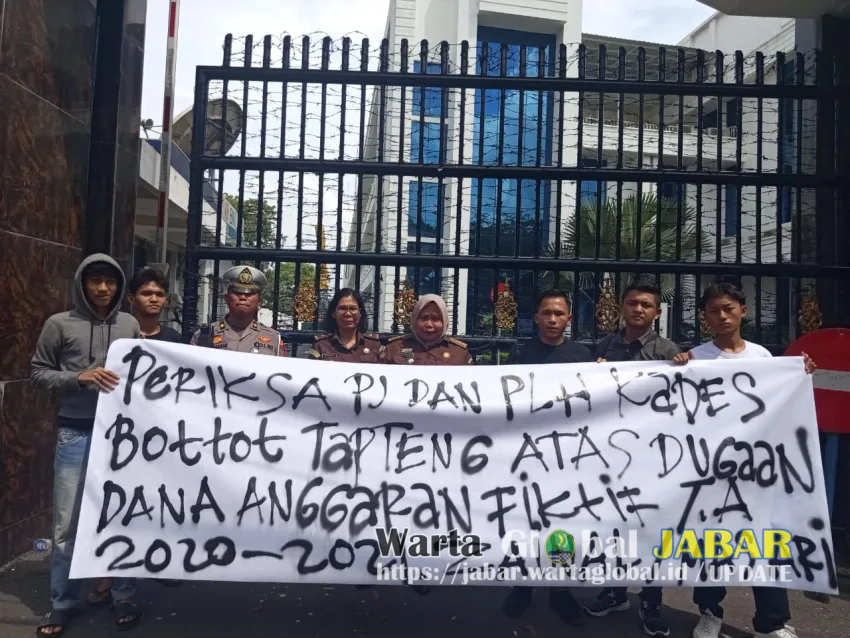 PERIKSA PJ DAN PLH KADES
Bottot TAPTENG ATAS DUGAAN
DANA ANGGARAN FiktiF T.A
2020-202
Warta Global JABAR
https://jabar.wartaglobal.id /UPDATE